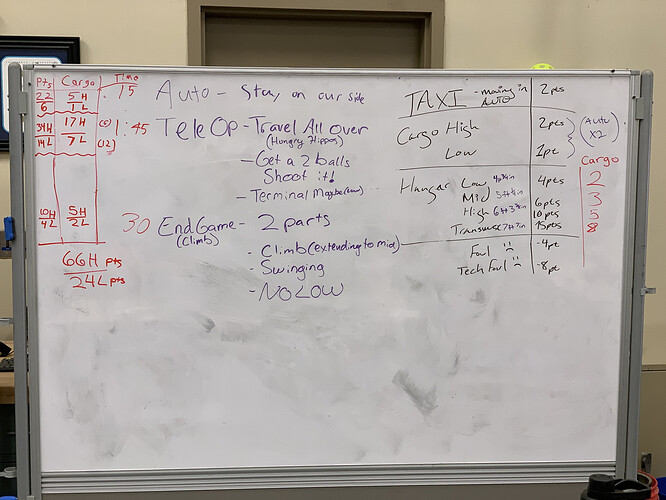 Pts Cargo Time
22 5H 15
6 1L
34H 17H (6) 1:45
14L 7L (12)
10H 5H 30
4L 2L
66H pts
24L pts
Auto - Stay on our side
TeleOp - Travel All Over
(Hungry Hippos)
- Get a 2 balls
Shoot it!
- Terminal Maybe
End Game - 2 parts
(Climb)
- Climb (extending to mid)
- Swinging
- NO LOW
TAXI - moving in AUTO 2pts
Cargo High 2pts
Low 1pt
(Auto X2)
Cargo
Hangar Low 4pts 2
Mid 6pts 3
High 10pts 5
Transverse 15pts 8
Foul -4pt
Tech Foul -8pt